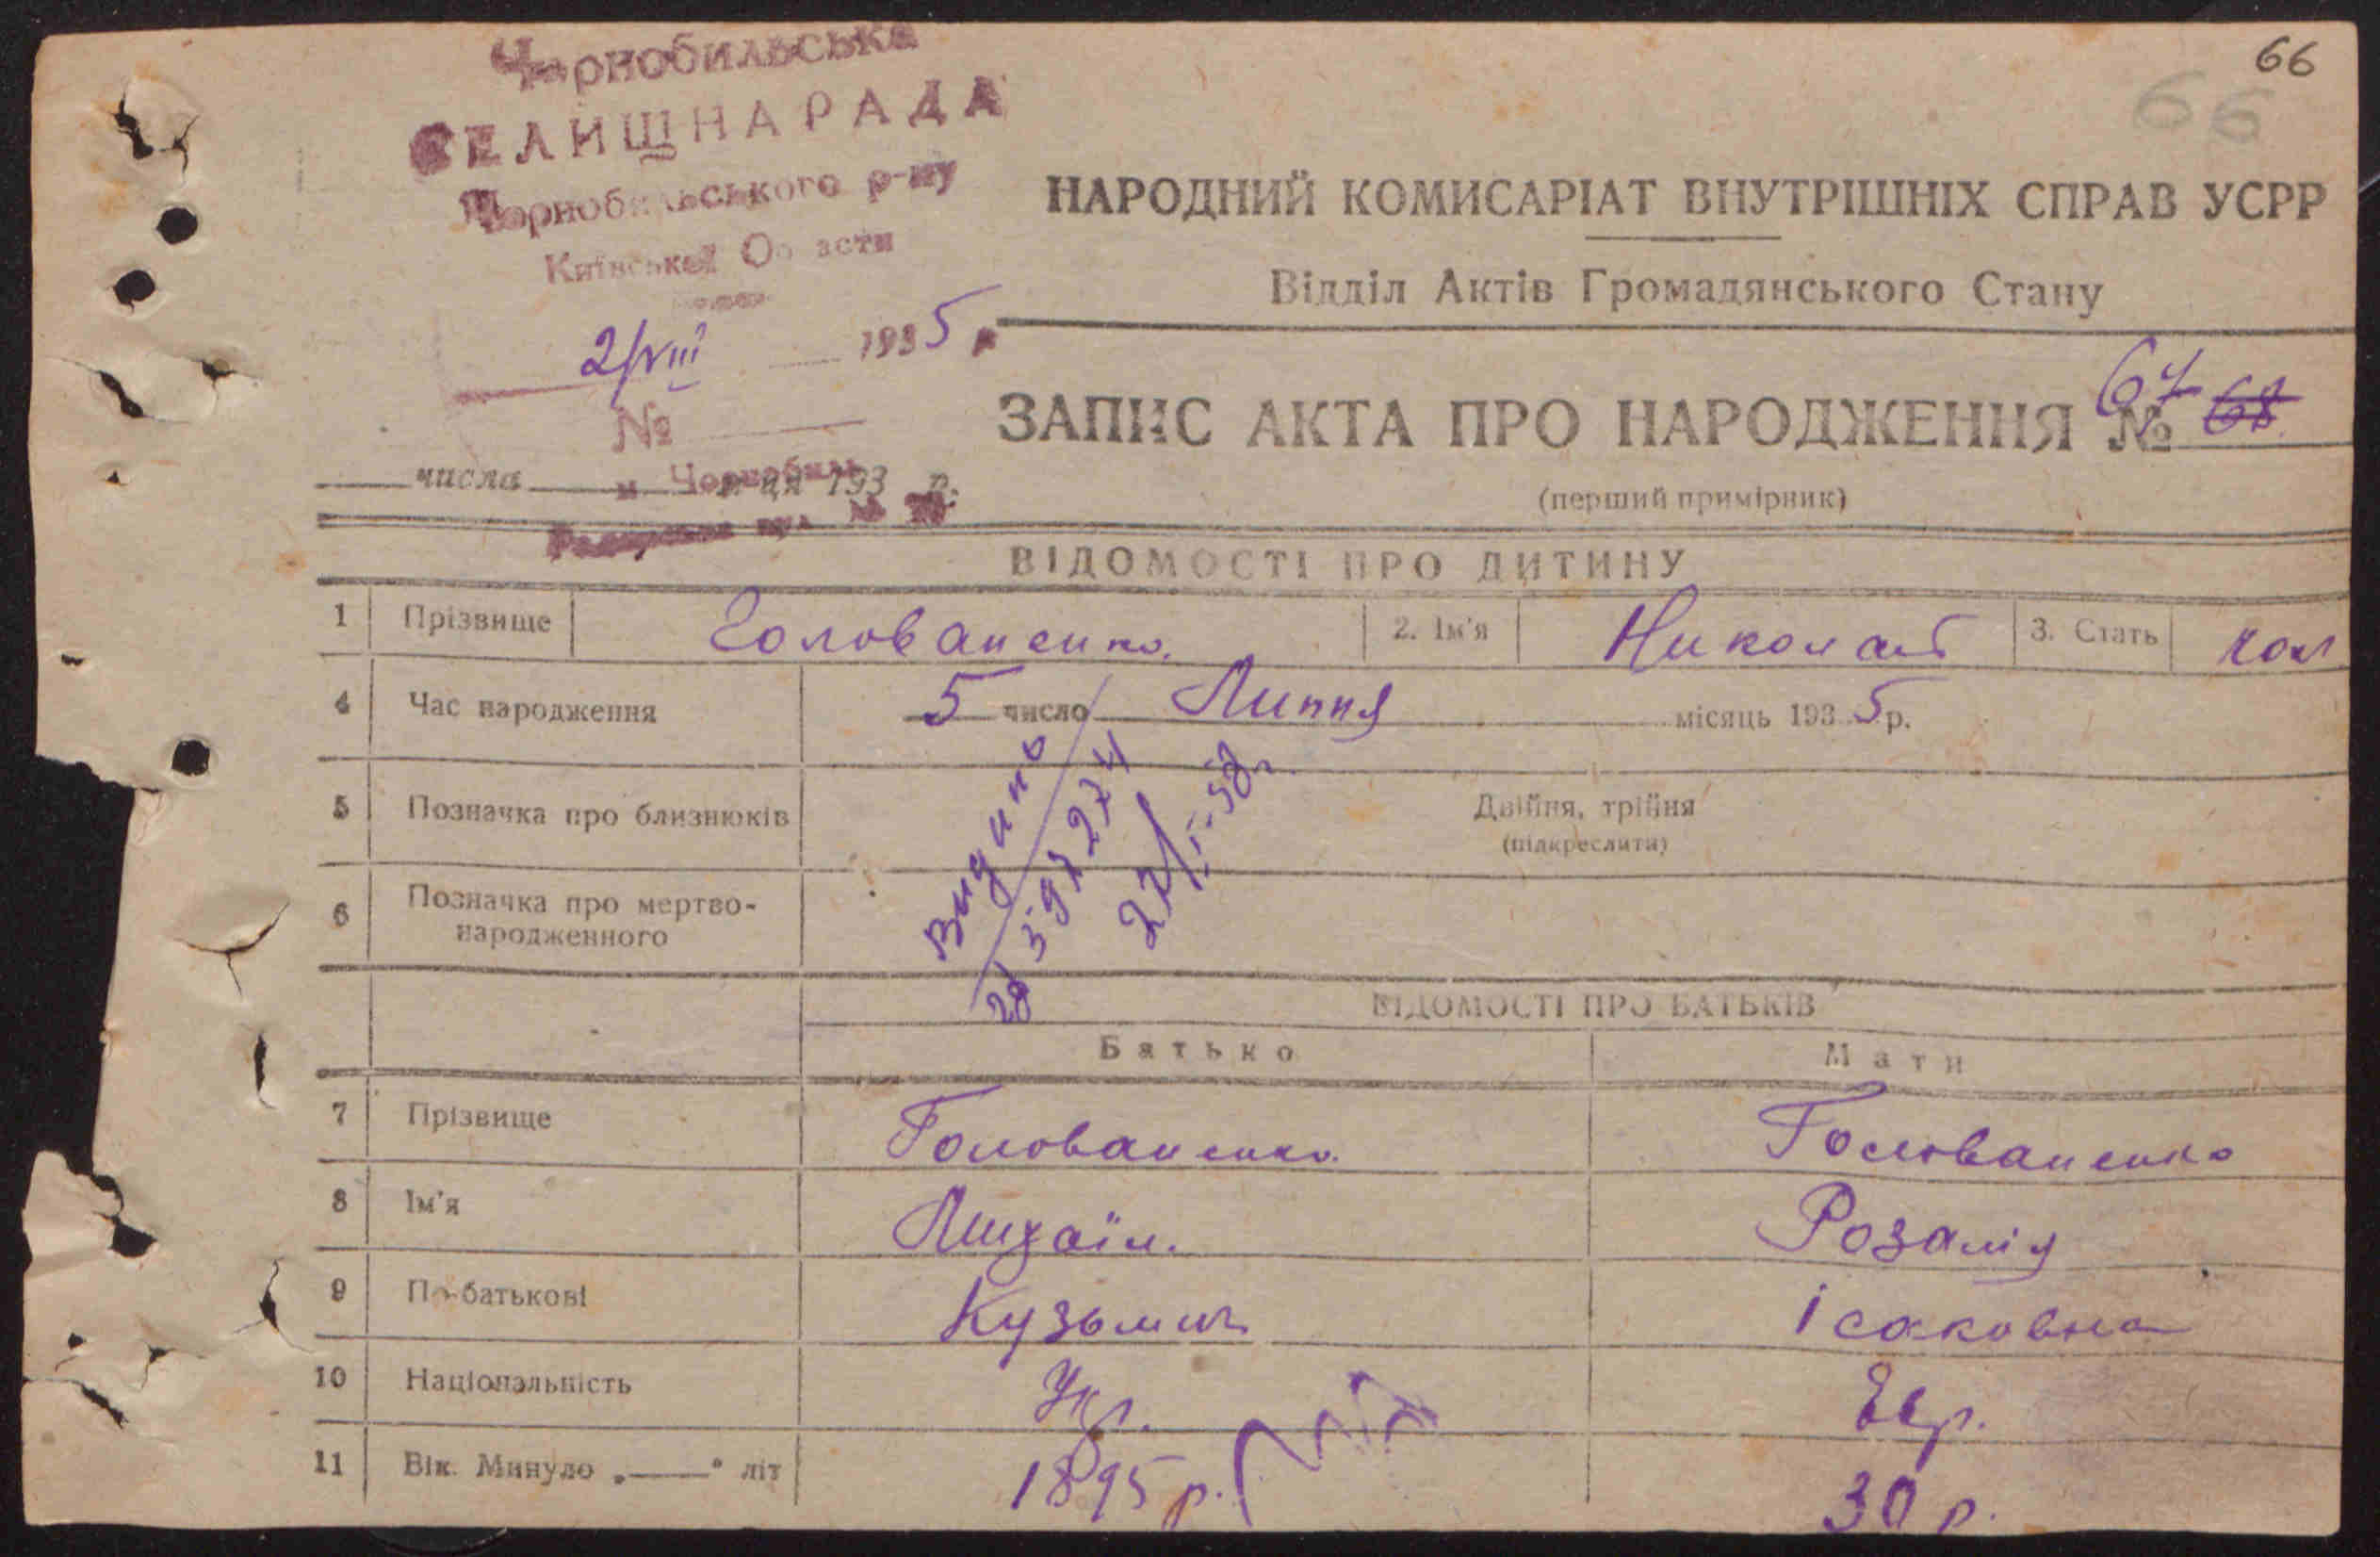 66
66
Чорнобильська
СЕЛИЩНА РАДА
Чорнобильського р-ну
Київської Области
2/VIII 1935 р
№
м Чорнобиль
вул. №
числа м-ця 193 р.
НАРОДНИЙ КОМИСАРІАТ ВНУТРІШНІХ СПРАВ УСРР
Відділ Актів Громадянського Стану
ЗАПИС АКТА ПРО НАРОДЖЕННЯ № 67 68
(перший примірник)
ВІДОМОСТІ ПРО ДИТИНУ
1 Прізвище Голованенко. 2. Ім'я Николай 3. Стать чол
4 Час народження 5 число Липня місяць 1935 р.
5 Позначка про близнюків Двійня, трійня
(підкреслити)
6 Позначка про мертво-
народженного
Видано
ВІДОМОСТІ ПРО БАТЬКІВ
Батько Мати
7 Прізвище Голованенко. Голованенко
8 Ім'я Михаїл. Розалія
9 По-батькові Кузьмич Ісаковна
10 Національність Укр. Евр.
11 Вік. Минуло „——“ літ 1895 р. 30 р.